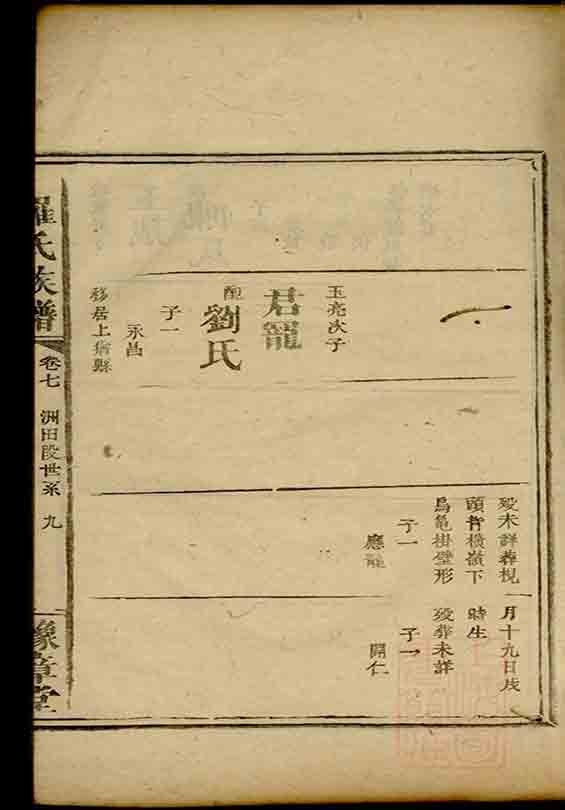 玉亮次子
君龍
配
劉氏
子一
永昌
移居上猶縣
歿未詳葬梘
頭背橫嶺下
烏龜掛壁形
子一
應龍
一月十九日戌
時生
歿葬未詳
子一
開仁
羅氏族譜
卷七
洲田段世系
九
豫章堂